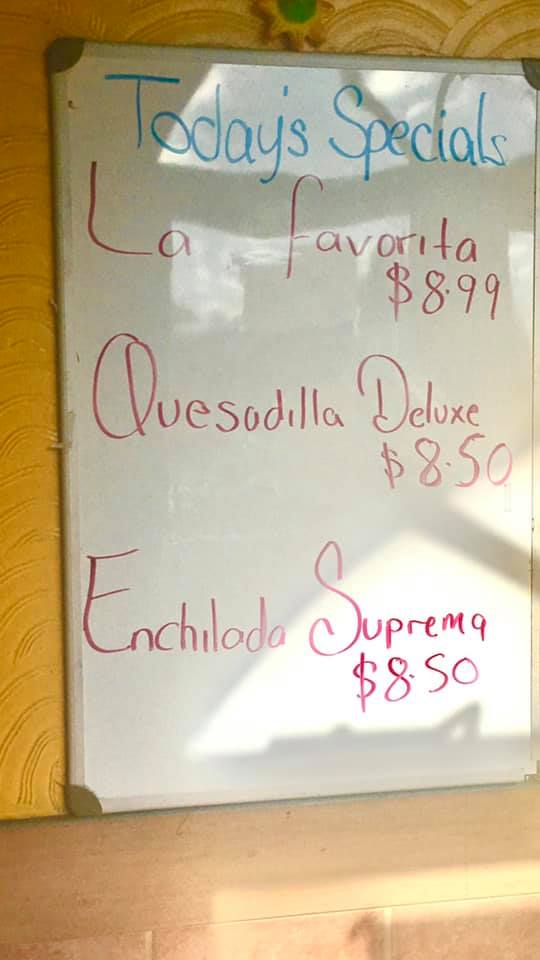 Today's Specials
La favorita
$8.99
Quesadilla Deluxe
$8.50
Enchilada Suprema
$8.50